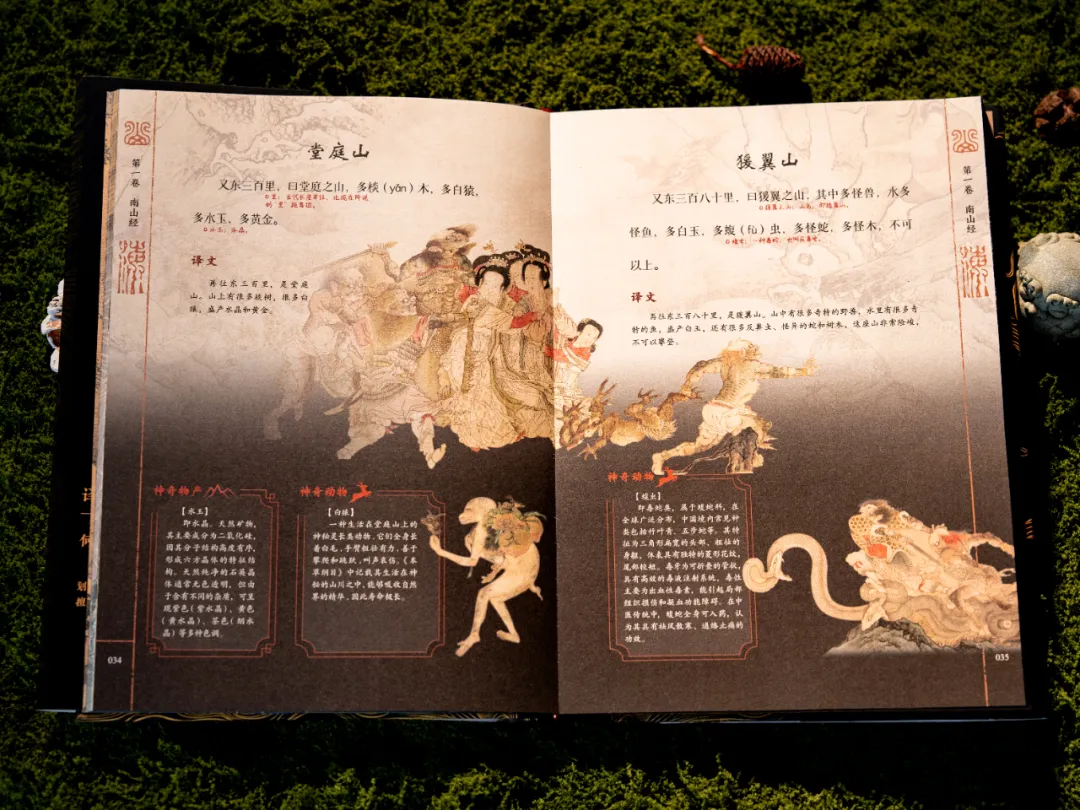 第一卷 南山经
堂庭山
又东三百里，曰堂庭之山，多棪（yǎn）木，多白猿，
多水玉，多黄金。
水玉：水晶。
译文
再往东三百里，是堂庭
山。山上有很多棪树，很多白
猿，盛产水晶和黄金。
神奇物产
【水玉】
即水晶。天然矿物，
其主要成分为二氧化硅，
因其分子结构高度有序，
形成六方晶体的特征结
构。天然纯净的石英晶
体通常无色透明，但由
于含有不同的杂质，可呈
现紫色（紫水晶）、黄色
（黄水晶）、茶色（烟水
晶）等多种色调。
神奇动物
【白猿】
一种生活在堂庭山上的
神秘灵长类动物。它们全身长
着白毛，手臂粗壮有力，善于
攀爬和跳跃，叫声哀伤。《本
草纲目》中记载其生活在神
秘的山川之中，能够吸收自然
界的精华，因此寿命极长。
034
第一卷 南山经
猨翼山
又东三百八十里，曰猨翼之山，其中多怪兽，水多
怪鱼，多白玉，多蝮（fù）虫，多怪蛇，多怪木，不可
以上。
译文
再往东三百八十里，是猨翼山。山中有很多奇特的野兽，水里有很多奇
特的鱼，盛产白玉，还有很多反鼻虫、怪异的蛇和树木。这座山非常险峻，
不可以攀登。
神奇动物
【蝮虫】
即毒蛇类，属于蝰蛇科，在
全球广泛分布，中国境内常见种
类包括竹叶青、五步蛇等。其特
征为三角形扁宽的头部、粗壮的
身躯，体表具有独特的菱形花纹，
尾部较短。毒牙为可折叠的管状，
具有高效的毒液注射系统，毒性
主要为出血性毒素，能引起局部
组织损伤和凝血功能障碍。在中
医传统中，蝮蛇全身可入药，认
为其具有祛风散寒、通络止痛的
功效。
035